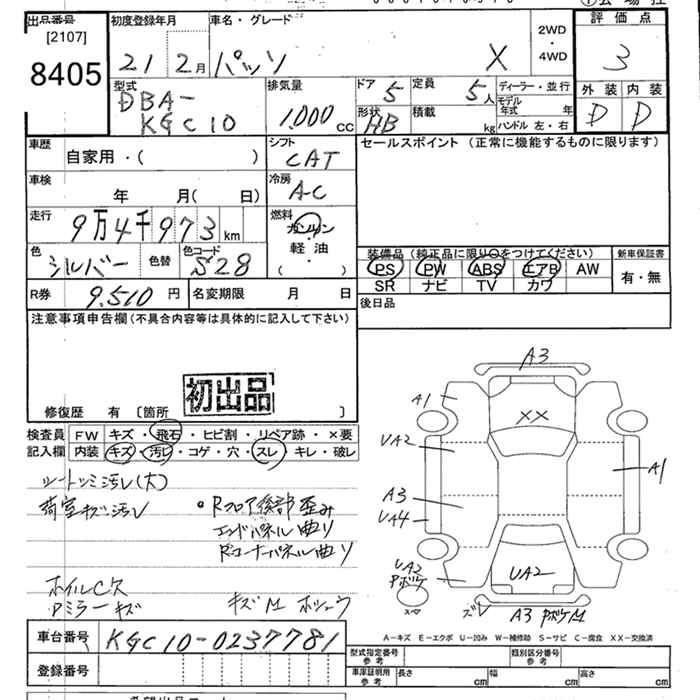 出品番号
[2107]
8405
初度登録年月
21 2月
車名・グレード
パッソ X
2WD
・
4WD
評価点
3
外装 内装
D D
型式
DBA-
KGC10
排気量
1,000 cc
ドア 5
形状 HB
定員 5人
積載 kg
ディーラー・並行
モデル年式 年
ハンドル 左・右
車歴
自家用・( )
シフト
CAT
車検
年 月( 日)
冷房
A-C
走行
9万4千973 km
燃料
ガソリン
・
軽油
( )
色
シルバー
色替
色コード
S28
R券 9,510円
名変期限 月 日
セールスポイント (正常に機能するものに限ります)
装備品 (純正品に限り○をつけてください)
PS PW ABS エアB AW
SR ナビ TV カワ
新車保証書
有・無
後日品
注意事項申告欄(不具合内容等は具体的に記入して下さい)
初出品
修復歴 有 〔箇所 〕
検査員
記入欄
FW キズ・飛石・ヒビ割・リペア跡・×要
内装 キズ・汚レ・コゲ・穴・スレ・キレ・破レ
シートシミ汚レ(大)
荷室キズ汚レ
・Rフロア後部歪み
エンドパネル曲り
Rコーナーパネル曲り
ホイルC欠
Dミラーキズ
キズM
A3
A1
XX
UA2
A1
A3
UA4
UA2
Pボケ
UA2
スペ
ズレ
A3 PボケM
A-キズ E-エクボ U-凹み W-補修跡 S-サビ C-腐食 XX-交換済
車台番号 KGC10-0237781
登録番号
型式指定番号
参考
類別区分番号
参考
車庫証明用
参考
長さ cm 幅 cm 高さ cm